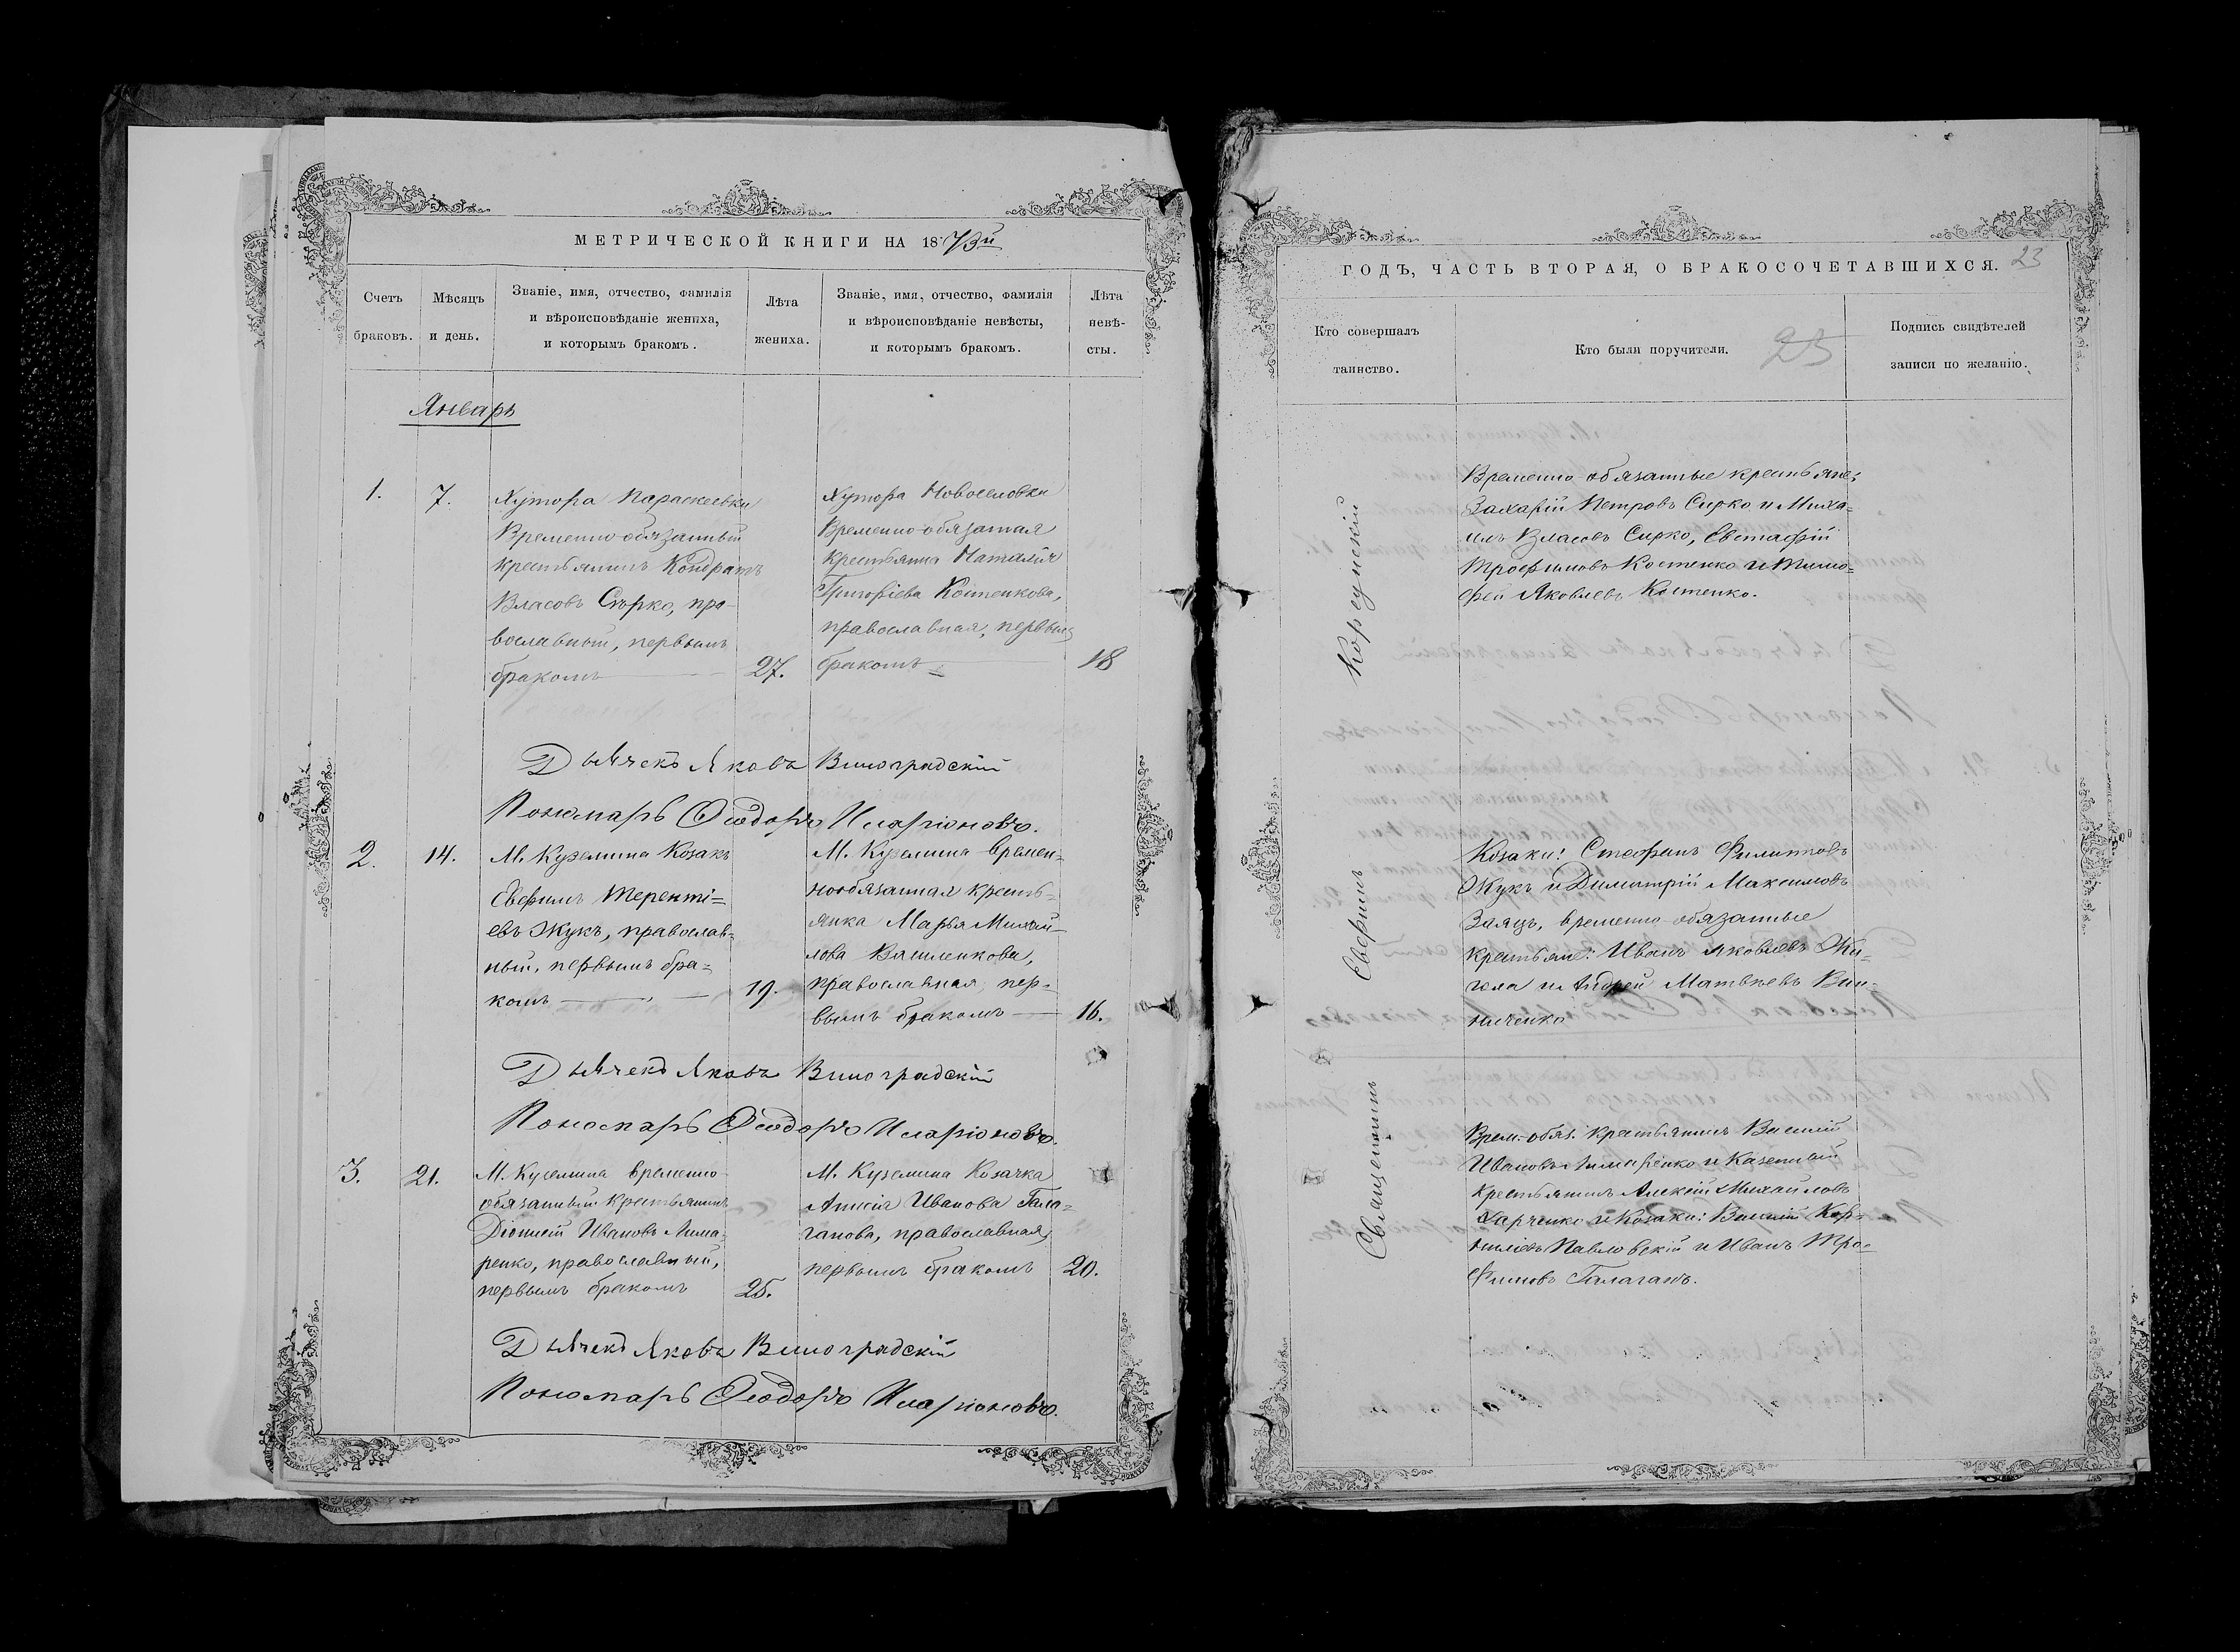 МЕТРИЧЕСКОЙ КНИГИ НА 1873й
Счетъ
браковъ.
Мѣсяцъ
и день.
Званіе, имя, отчество, фамилія
и вѣроисповѣданіе жениха,
и которымъ бракомъ.
Лѣта
жениха.
Званіе, имя, отчество, фамилія
и вѣроисповѣданіе невѣсты,
и которымъ бракомъ.
Лѣта
невѣ-
сты.
Январь
1.
7.
Хутора Параскеевки
Временно-обязанный
крестьянинъ Кондратъ
Власовъ Сирко, пра-
вославный, первымъ
бракомъ
27.
Хутора Новоселовки
Временно-обязанная
крестьянка Наталія
Григоріева Костенкова,
православная, первымъ
бракомъ
18
Дьячекъ Яковъ Виноградскій
Пономарь Ѳеодоръ Иларіоновъ.
2.
14.
М. Куземина Козакъ
Евфимъ Теренті=
евъ Жукъ, православ=
ный, первымъ бра=
комъ
19.
М. Куземина времен=
нообязанная кресть=
янка Марья Михай=
лова Василенкова,
православная, пер=
вымъ бракомъ
16.
Дьячекъ Яковъ Виноградскій
Пономарь Ѳеодоръ Иларіоновъ.
3.
21.
М. Куземина временно
обязанный крестьянинъ
Діонисій Ивановъ Лима=
ренко, православный,
первымъ бракомъ
25.
М. Куземина Козачка
Анисія Иванова Гала=
ганова, православная,
первымъ бракомъ
20.
Дьячекъ Яковъ Виноградскій
Пономарь Ѳеодоръ Иларіоновъ.
ГОДЪ, ЧАСТЬ ВТОРАЯ, О БРАКОСОЧЕТАВШИХСЯ.
23
Кто совершалъ
таинство.
Кто были поручители.
23
Подпись свидѣтелей
записи по желанію.
Священникъ Корсунскій
Временно обязанные крестьяне:
Захарій Петровъ Сирко и Миха=
илъ Власовъ Сирко, Евстафій
Трофимовъ Костенко и Тимо=
фей Яковлевъ Костенко.
Козаки: Стефанъ Филипповъ
Жукъ и Димитрій Максимовъ
Заяцъ, временно-обязанные
крестьяне: Иванъ Яковлевъ
и Андрей Матвѣевъ Вин=
ниченко
Врем.-обяз. крестьянинъ Василій
Ивановъ Лимаренко и Казенный
крестьянинъ Алексій Михайловъ
Харченко и Козаки: Василій Кор=
ниліевъ Павловскій и Иванъ Тро=
фимовъ Галаганъ.